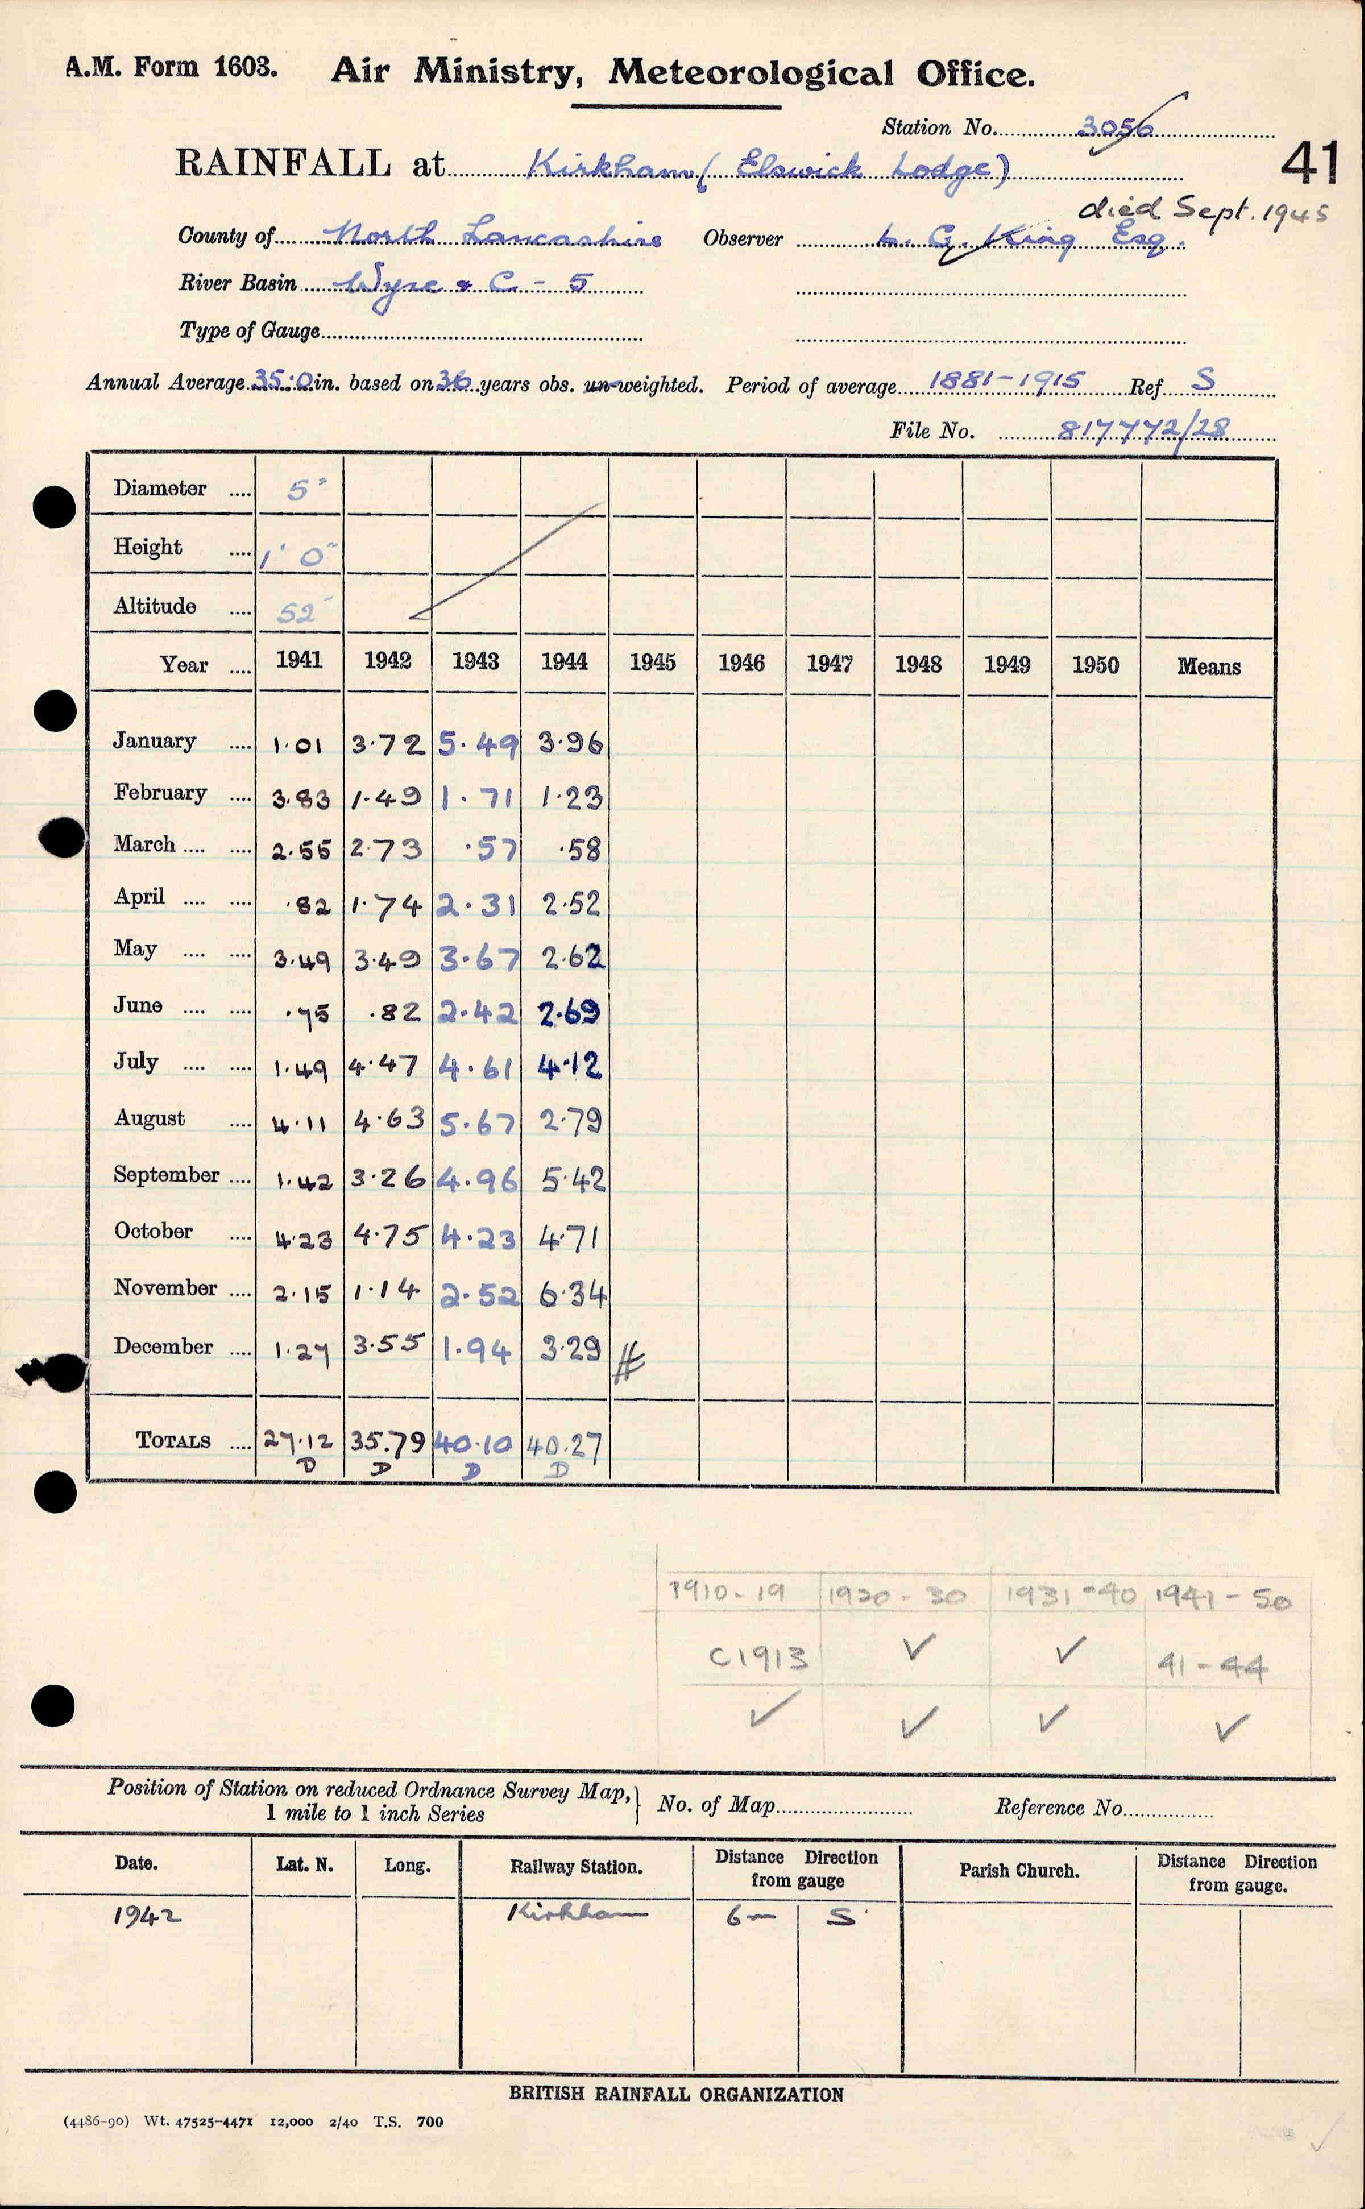 A.M. Form 1603. Air Ministry, Meteorological Office.
Station No. 3056
RAINFALL at Kirkham (Elswick Lodge) 41
died Sept. 1945
County of North Lancashire Observer L. G. King Esq.
River Basin Wyre & C - 5
Type of Gauge
Annual Average 35.0 in. based on 36 years obs. un-weighted. Period of average 1881-1915 Ref S
File No. 817772/28
Diameter .... 5"
Height .... 1' 0"
Altitude .... 52'
Year .... 1941 1942 1943 1944 1945 1946 1947 1948 1949 1950 Means
January .... 1.01 3.72 5.49 3.96
February .... 3.83 1.49 1.71 1.23
March .... .... 2.55 2.73 .57 .58
April .... .... .82 1.74 2.31 2.52
May .... .... 3.49 3.49 3.67 2.62
June .... .... .75 .82 2.42 2.69
July .... .... 1.49 4.47 4.61 4.12
August .... 4.11 4.63 5.67 2.79
September .... 1.42 3.26 4.96 5.42
October .... 4.23 4.75 4.23 4.71
November .... 2.15 1.14 2.52 6.34
December .... 1.27 3.55 1.94 3.29
TOTALS .... 27.12 35.79 40.10 40.27
D D D D
1910-19 1920-30 1931-40 1941-50
C1913 ✓ ✓ 41-44
✓ ✓ ✓ ✓
Position of Station on reduced Ordnance Survey Map, 1 mile to 1 inch Series } No. of Map Reference No.
Date. Lat. N. Long. Railway Station. Distance Direction from gauge Parish Church. Distance Direction from gauge.
1942 Kirkham 6m S
BRITISH RAINFALL ORGANIZATION
(4486-90) Wt. 47525-4471 12,000 2/40 T.S. 700